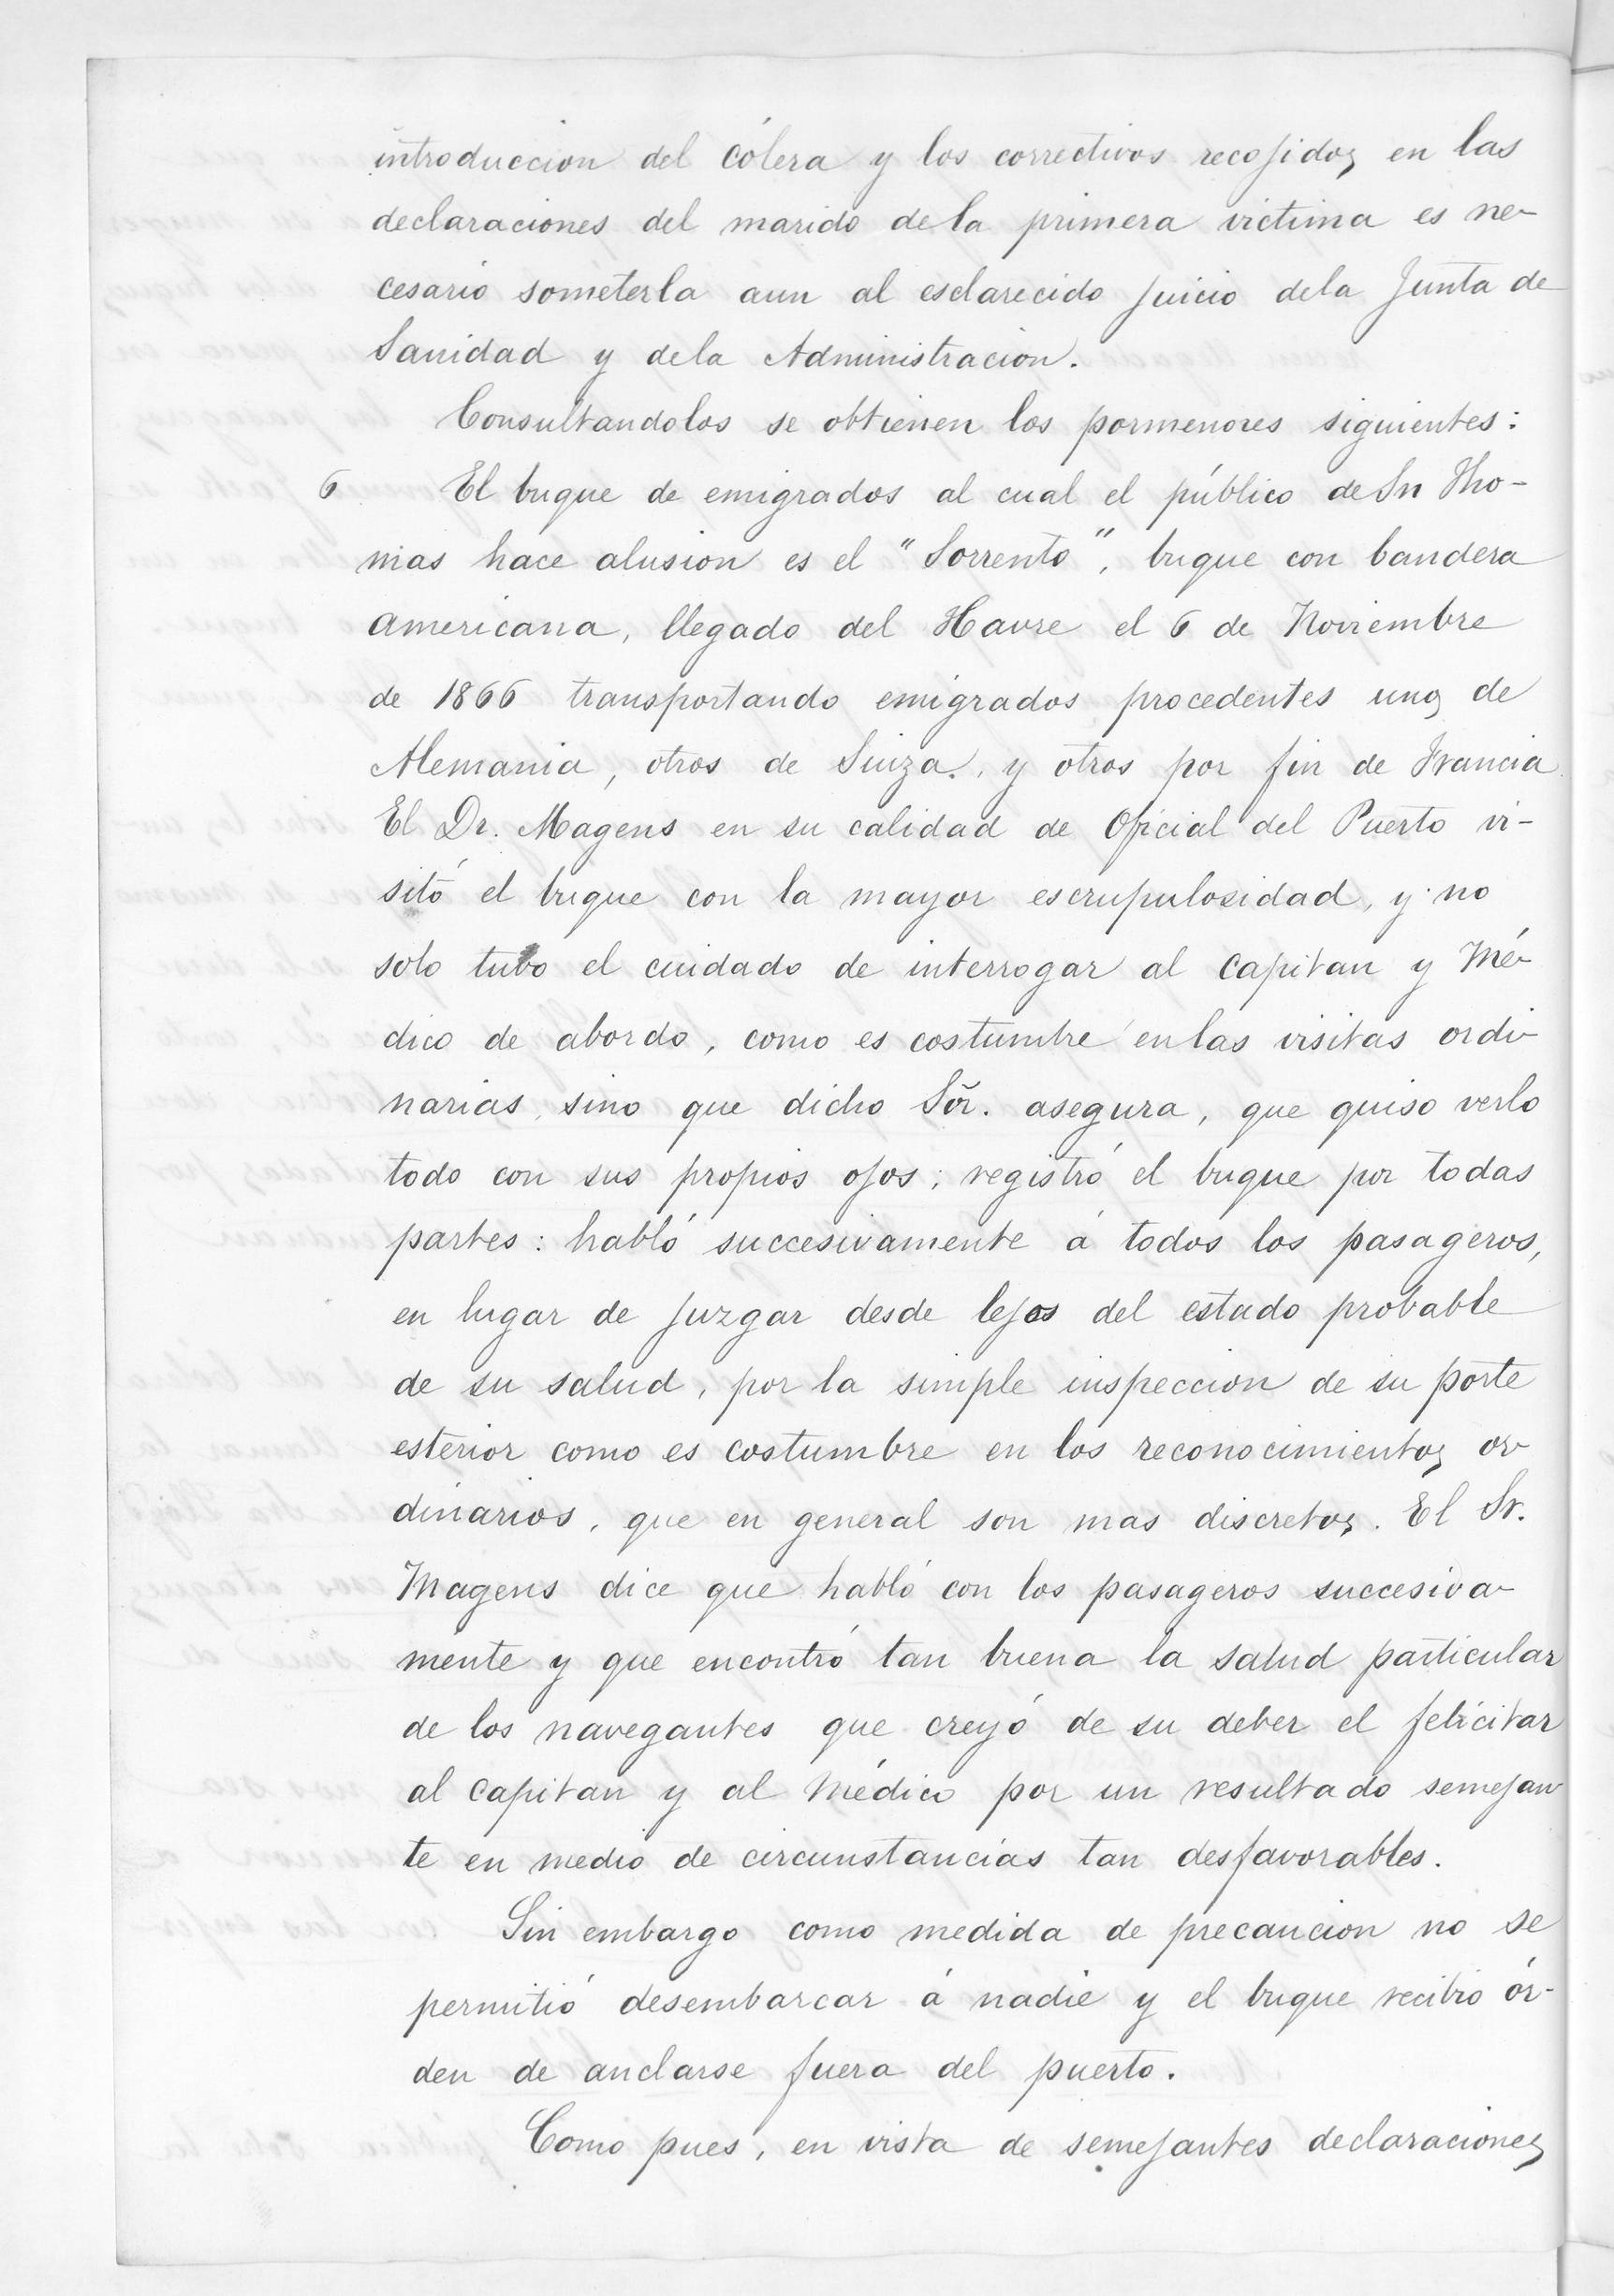 introduccion del cólera y los correctivos recojidos en las
declaraciones del marido de la primera victima es ne-
cesario someterla aun al esclarecido juicio dela Junta de
Sanidad y dela Administracion.
Consultandolos se obtienen los pormenores siguientes:
6 El buque de emigrados al cual el público de Sn Tho-
mas hace alusion es el "Sorrento", buque con bandera
americana, llegado del Havre el 6 de Noviembre
de 1866 transportando emigrados procedentes unos de
Alemania, otros de Suiza, y otros por fin de Francia
El Dr. Magens en su calidad de Oficial del Puerto vi-
sitó el buque con la mayor escrupulosidad, y no
solo tubo el cuidado de interrogar al capitan y Mé-
dico de abordo, como es costumbre en las visitas ordi-
narias, sino que dicho Sõr. asegura, que quiso verlo
todo con sus propios ojos; registró el buque por todas
partes: habló succesivamente á todos los pasageros,
en lugar de juzgar desde lejos del estado probable
de su salud, por la simple inspeccion de su porte
esterior como es costumbre en los reconocimientos or-
dinarios, que en general son mas discretos. El Sr.
Magens dice que habló con los pasageros succesiva-
mente y que encontró tan buena la salud particular
de los navegantes que creyó de su deber el felicitar
al capitan y al Médico por un resultado semejan-
te en medio de circunstancias tan desfavorables.
Sin embargo como medida de precaucion no se
permitió desembarcar á nadie y el buque recibió ór-
den de anclarse fuera del puerto.
Como pues, en vista de semejantes declaraciones